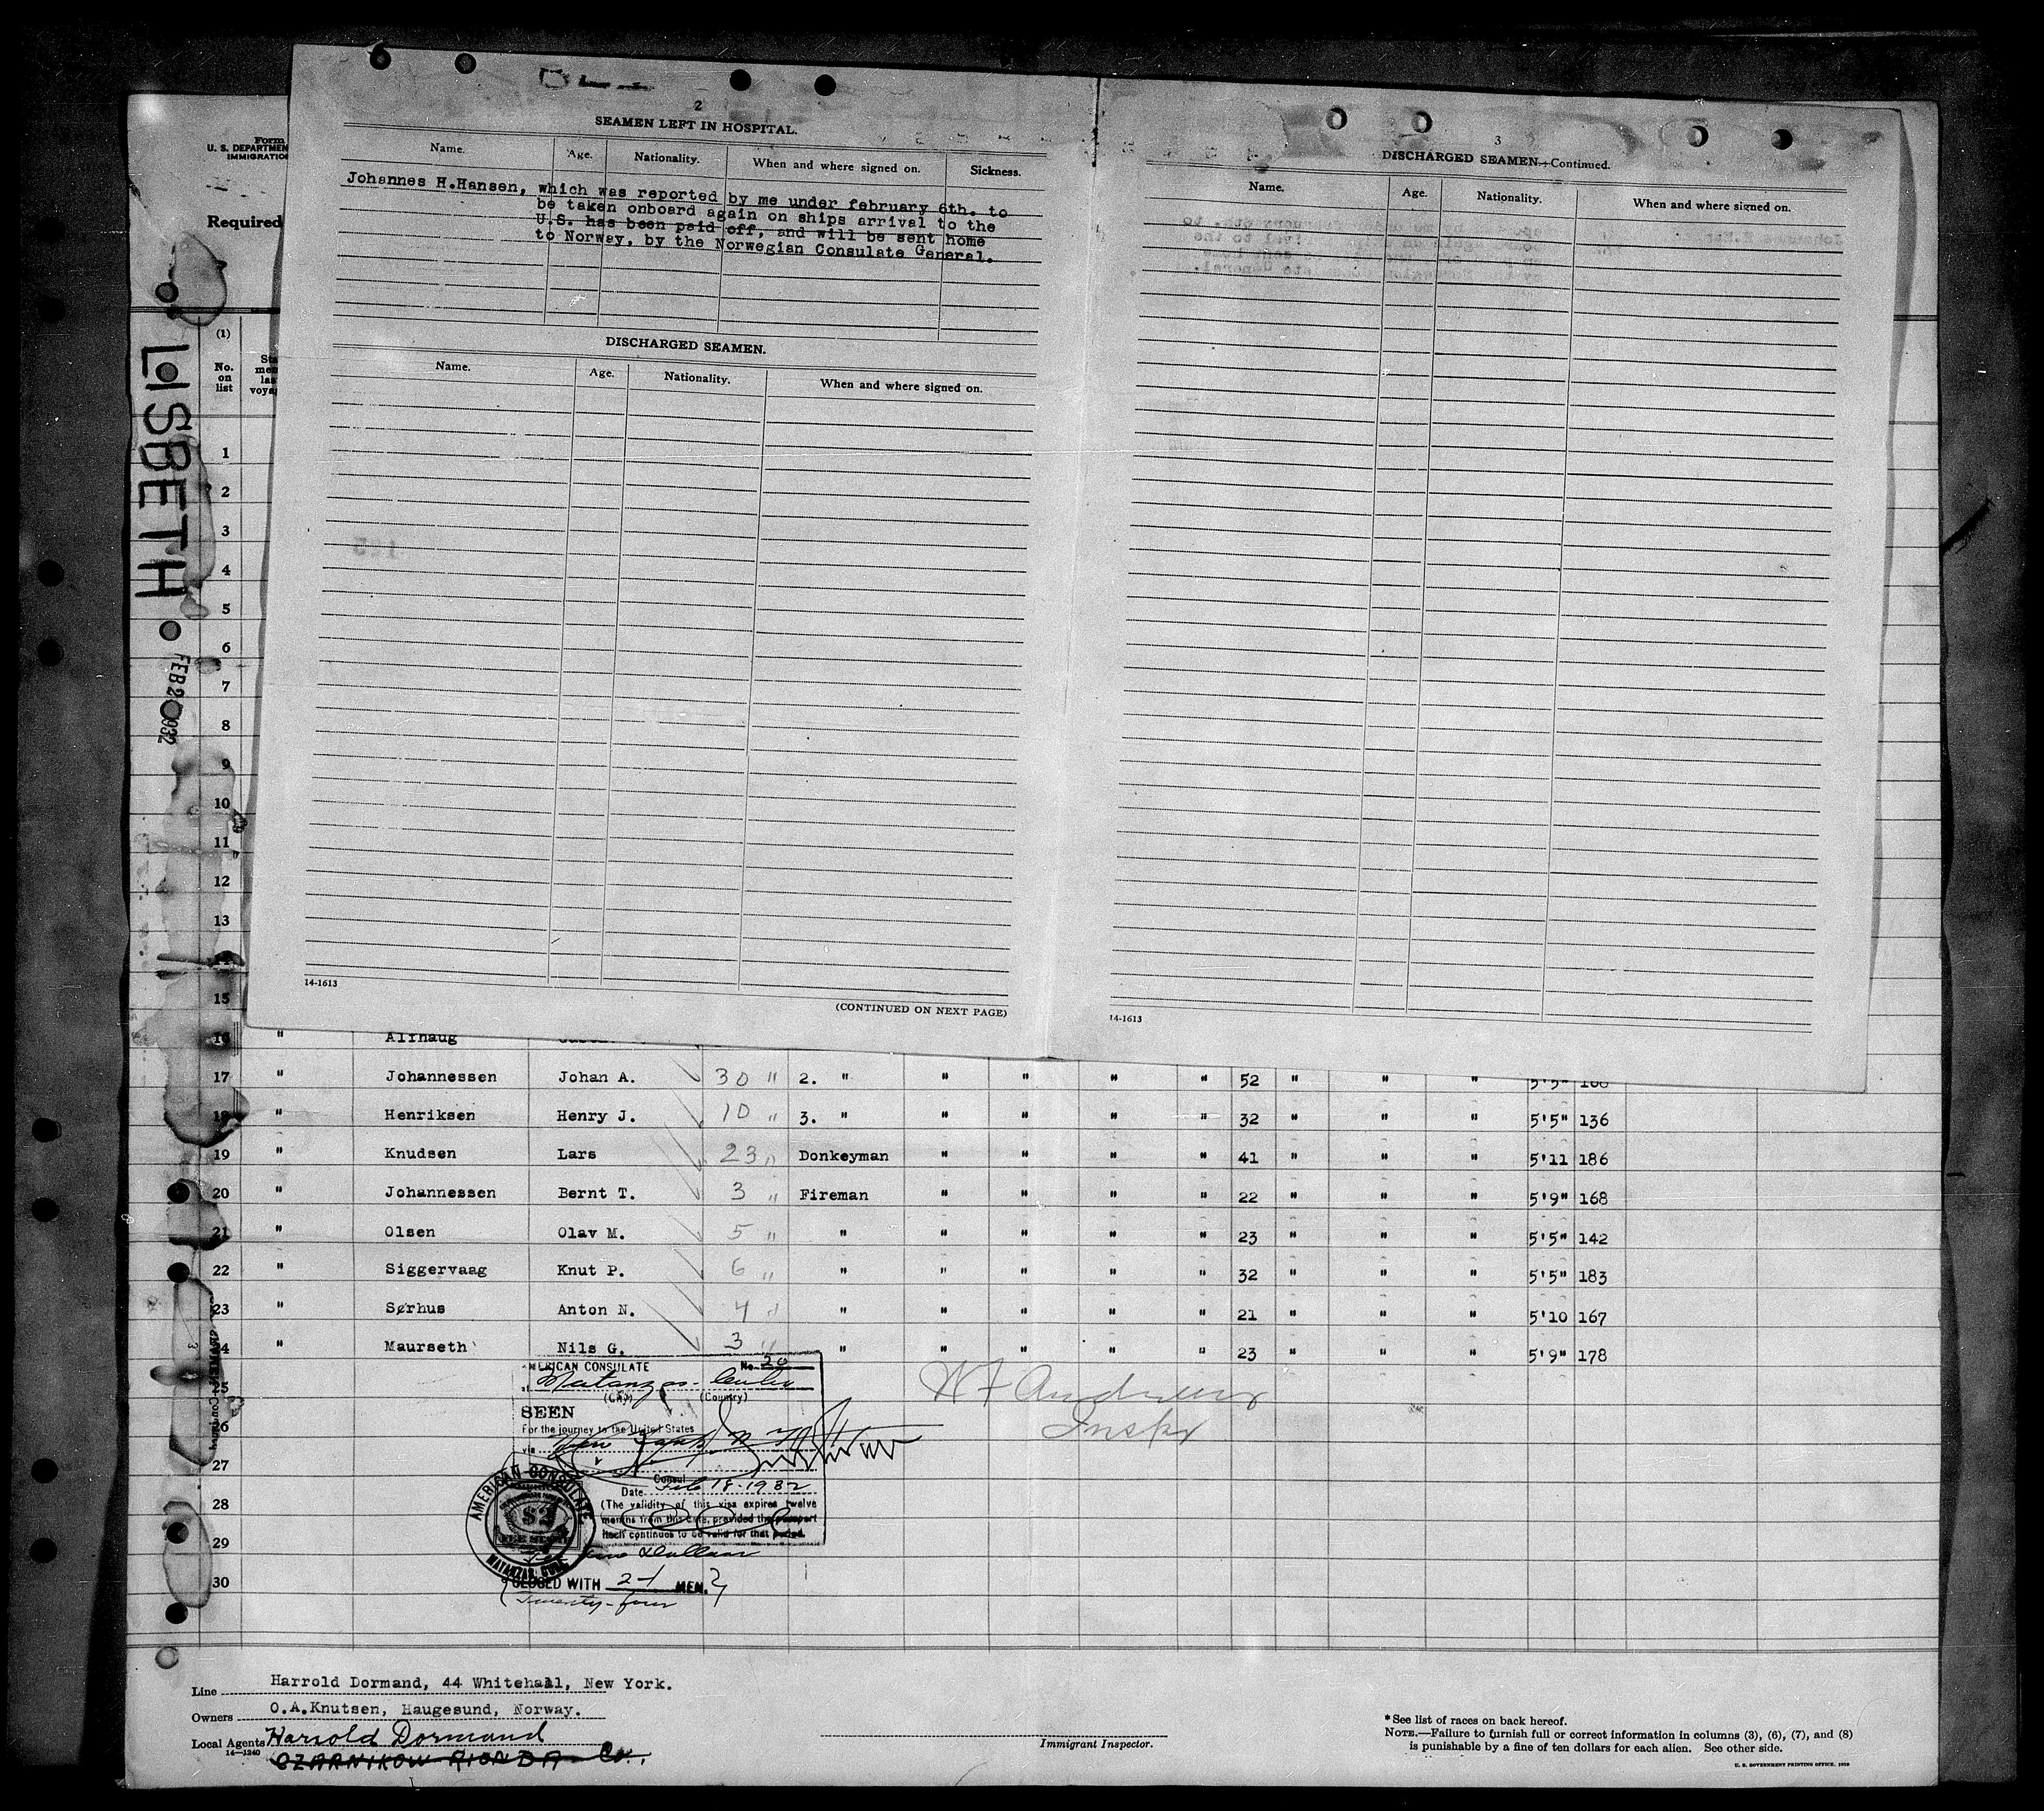 2
SEAMEN LEFT IN HOSPITAL.
Name. Age. Nationality. When and where signed on. Sickness.
Johannes H.Hansen, which was reported by me under february 6th. to
be taken onboard again on ships arrival to the
U.S. has been paid off, and will be sent home
to Norway, by the Norwegian Consulate General.
DISCHARGED SEAMEN.
Name. Age. Nationality. When and where signed on.
14-1613
(CONTINUED ON NEXT PAGE)
3
DISCHARGED SEAMEN—Continued.
Name. Age. Nationality. When and where signed on.
14-1613
Form
U. S. DEPARTMEN
IMMIGRATIO
Required
LISBETH
FEB 2 1932
(1)
No. on list
1
2
3
4
5
6
7
8
9
10
11
12
13
14
15
16 " Alfhaug
17 " Johannessen Johan A. 30 " 2. " " " " " 52 " " " 5'5"
18 " Henriksen Henry J. 10 " 3. " " " " " 32 " " " 5'5" 136
19 " Knudsen Lars 23 " Donkeyman " " " " 41 " " " 5'11 186
20 " Johannessen Bernt T. 3 " Fireman " " " " 22 " " " 5'9" 168
21 " Olsen Olav M. 5 " " " " " " 23 " " " 5'5" 142
22 " Siggervaag Knut P. 6 " " " " " " 32 " " " 5'5" 183
23 " Sørhus Anton N. 4 " " " " " " 21 " " " 5'10 167
24 " Maurseth Nils G. 3 " " " " " " 23 " " " 5'9" 178
25
26
27
28
29
30
AMERICAN CONSULATE No. 20
Matanzas Cuba
(City) (Country)
SEEN
For the journey to the United States
via New York
Consul
Date Feb 18-1932
(The validity of this visa expires twelve
months from this date, provided the passport
itself continues to be valid for that period.
AMERICAN CONSULATE
$2
MATANZAS, CUBA
CLOSED WITH 24 MEN.
Twenty-four
W F Andrews
Inspr
Line Harrold Dormand, 44 Whitehall, New York.
Owners O.A.Knutsen, Haugesund, Norway.
Local Agents Harrold Dormand
14—1240
CZARNIKOW RIONDA Co.
Immigrant Inspector.
* See list of races on back hereof.
NOTE.—Failure to furnish full or correct information in columns (3), (6), (7), and (8)
is punishable by a fine of ten dollars for each alien. See other side.
U. S. GOVERNMENT PRINTING OFFICE.